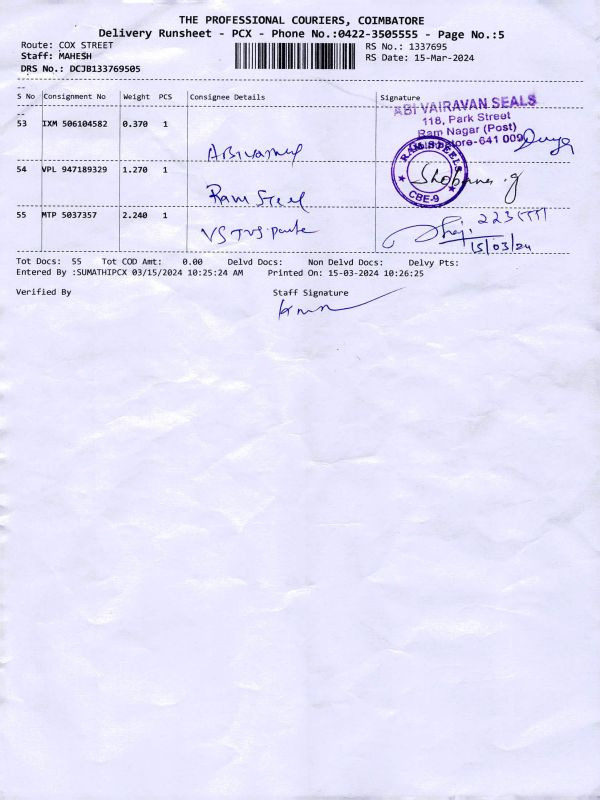 THE PROFESSIONAL COURIERS, COIMBATORE
Delivery Runsheet - PCX - Phone No.:0422-3505555 - Page No.:5
Route: COX STREET
RS No.: 1337695
Staff: MAHESH
RS Date: 15-Mar-2024
DRS No.: DCJB133769505
S No Consignment No Weight PCS Consignee Details Signature
ABI VAIRAVAN SEALS
118, Park Street
Ram Nagar (Post)
53 IXM 506104582 0.370 1
641 009
RAM STEELS
CBE-9
54 VPL 947189329 1.270 1
Shobana.g
Ram Steel
55 MTP 5037357 2.240 1
VS TVS
15/03/24
Tot Docs: 55 Tot COD Amt: 0.00 Delvd Docs: Non Delvd Docs: Delvy Pts:
Entered By :SUMATHIPCX 03/15/2024 10:25:24 AM Printed On: 15-03-2024 10:26:25
Verified By Staff Signature